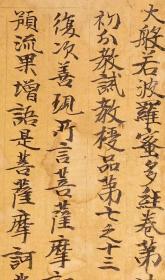 大般若波羅蜜多經卷第
初分教誡教授品第七之十三
復次善現所言菩薩摩
預流果增語是菩薩摩訶